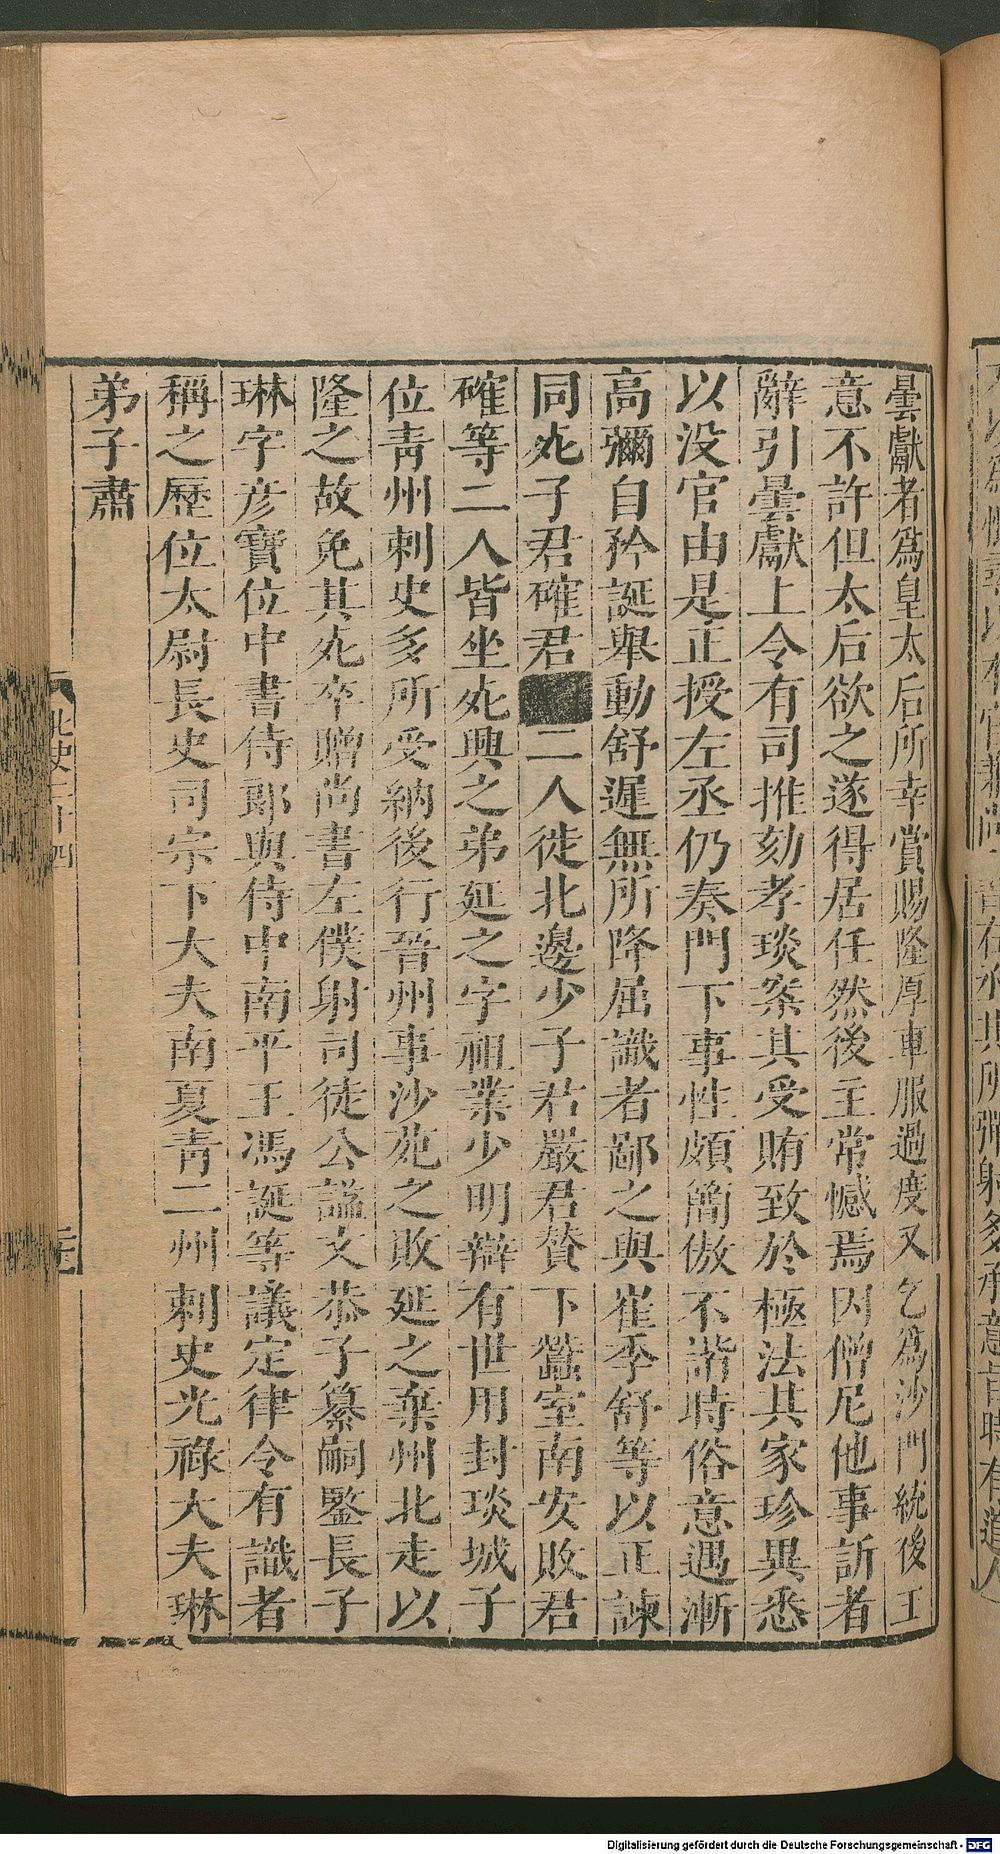 曇獻者爲皇太后所幸賞賜隆厚車服過度又乞爲沙門統後主
意不許但太后欲之遂得居任然後主常憾焉因僧尼他事訴者
辭引曇獻上令有司推劾孝琰案其受賄致於極法其家珍異悉
以没官由是正授左丞仍奏門下事性頗簡傲不諧時俗意遇漸
高彌自矜誕舉動舒遲無所降屈識者鄙之與崔季舒等以正諫
同死子君確君二人徙北邊少子君嚴君贊下蠶室南安敗君
確等二人皆坐死興之弟延之字祖業少明辯有世用封琰城子
位靑州刺史多所受納後行晉州事沙苑之敗延之棄州北走以
隆之故免其死卒贈尚書左僕射司徒公謚文恭子纂嗣鑒長子
琳字彥寶位中書侍郎與侍中南平王馮誕等議定律令有識者
稱之歷位太尉長史司宗下大夫南夏靑二州刺史光祿大夫琳
弟子肅
北史二十四
Digitalisierung gefördert durch die Deutsche Forschungsgemeinschaft - DFG